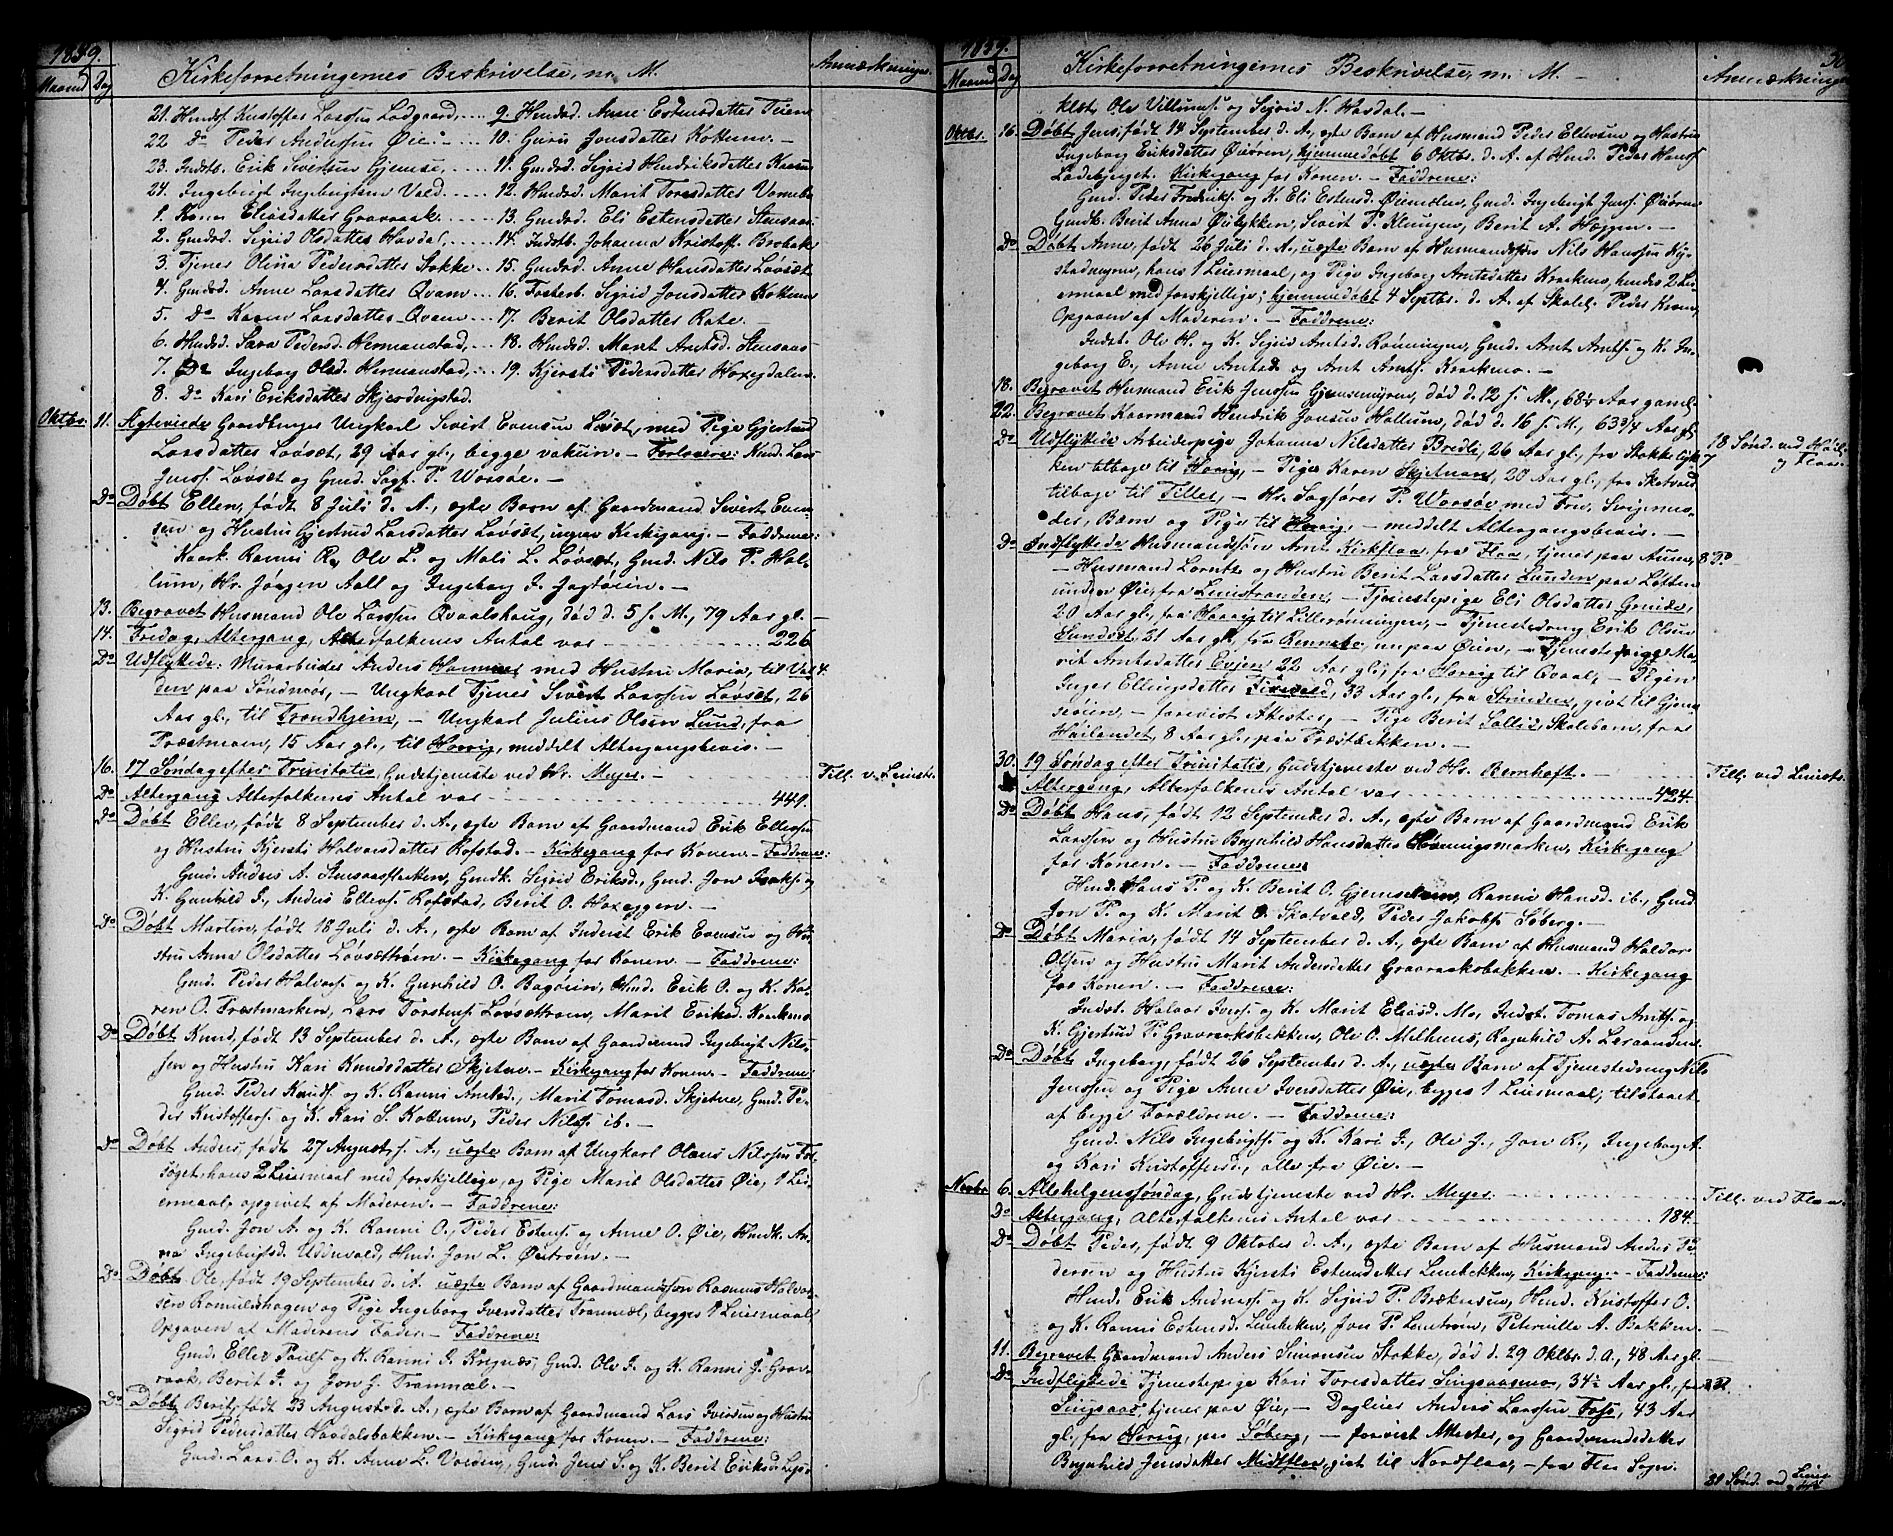 1859.
Maaned Dag Kirkeforretningernes Beskrivelse, m. M. Anmærkninger.
21. Huusf. Kristoffer Larssen Lodgaard, ... 9. Huusd. Anne Estensdatter Teien
22 Do Peder Anderssen Øie. - ... 10. Guru Jonsdatter Kottum. -
23. Indstb. Erik Sivertsen Gjemse, ... 11. Gmdsd. Sigrid Hendriksdatter Kaasen
24. Ingebrigt Ingebrigtsen Vald. ... 12. Huusd. Marit Toresdatter Varnebo
1. Karen Eliasdatter Graaraak. ... 13. Gmdsd. Eli Estensdatter Stensaas
2. Gmdsd. Sigrid Olsdatter Havdal, ... 14. Indstb. Johanna Kristoff. Brobak
3. Tjener Olina Pedersdatter Stokke .. 15. Gmdsd. Anne Hansdatter Løvset
4. Gmdsd. Anne Larsdatter Qvam ... 16. Fosterb. Sigrid Jonsdatter Kottum
5. Do Karen Larsdatter Qvam ... 17. Berit Olsdatter Rate. -
6. Huusd. Sara Pedersd. Hermanstad, ... 18. Huusd. Marit Arntsd. Stensaas
7. Do Ingeborg Olsd. Hermanstad, ... 19. Kjersti Pedersdatter Haxegdalen
8. Do Kari Eriksdatter Skjerdingstad.
Oktbr. 11. Ægteviede Gaardbruger Ungkarl Sivert Evensen Løvset, med Pige Gjertrud
Larsdatter Løvset, 29 Aar gl., begge vakcin. - Forlovere: Gmd. Lars
Jenss. Løvset og Gmd. Sagf. P. Worsøe. -
Do Døbt Ellen, født 8 Juli d. A., ægte Barn af Gaardmand Sivert Even-
sen og Hustru Gjertrud Larsdatter Løvset, ingen Kirkegang. - Faddrene:
Kaark. Ranni R., Ole L. og Mali L. Løvset, Gmd. Nils P. Hol-
lum, Hr. Jørgen Aall og Ingeborg J. Jagtøien. -
13. Begravet Husmand Ole Larssen Qvaalshaug, død d. 5 f. M., 79 Aar gl. -
14. Fredag, Altergang, Alterfolkenes Antal var ... 226
Do Udflyttede: Murarbeider Anders Hammer med Hustru Maria, til Vol- 4.
den paa Søndmør, - Ungkarl Tjener Sivert Larssen Løvset, 26
Aar gl., til Trondhjem, - Ungkarl Julius Olsen Lund, fra
Præstmoen, 15 Aar gl., til Horrig, meddelt Altergangsbevis. -
16. 17 Søndag efter Trinitatis, Gudstjeneste ved Hr. Meyer. - ... Till. v. Leinst.
Do Altergang Alterfolkenes Antal var ... 449.
Do Døbt Eller, født 8 September d. A., ægte Barn af Gaardmand Erik Ellersen
og Hustru Kjersti Halvorsdatter Rofstad. - Kirkegang for Konen. - Faddrene:
Gmd. Anders A. Stensaasflatten, Gmdk. Sigrid Eriksd., Gmd. Jon Isaks. og
K. Gunhild J., Anders Ellers. Rofstad, Berit O. Haxeggen. -
Do Døbt Martin, født 18 Juli d. A., ægte Barn af Inderst Erik Evensen og Hu-
stru Anna Olsdatter Løvsættrøen. - Kirkegang for Konen. - Faddrene:
Gmd. Peder Halvors. og K. Gunhild O. Bagøien, Hmd. Erik O. og K. Ka-
ren O. Præstmarken, Lars Torstens. Løvsættrøen, Marit Eriksd. Krakmo
Do Døbt Knud, født 13 September d. A., ægte Barn af Gaardmand Ingebrigt Nils-
sen og Hustru Kari Knudsdatter Skjetne. - Kirkegang for Konen. - Faddrene:
Gmd. Peder Knuds. og K. Ranni Arntsd., Marit Tomasd. Skjetne, Gmd. Pe-
der Kristoffers. og K. Kari S. Kottum, Peder Nilss. ib. -
Do Døbt Anders, født 27 August f. A., uægte Barn af Ungkarl Olaus Nilssen For-
søget, hans 2 Leiermaal med forskjellige, og Pige Marit Olsdatter Øie, 1 Lei-
ermaal, opgivet af Moderen. - Faddrene:
Gmd. Jon A. og K. Ranni O., Peder Estens. og Anne O. Øie, Hmdk. An-
na Ingebrigtsd. Udduvald, Hmd. Jon L. Øietrøen. -
Do Døbt Ole, født 19 September d. A. uægte Barn af Gaardmandssøn Rasmus Halvor-
sen Romulshagen og Pige Ingeborg Iversdatter Tranmæl, begges 1 Leiermaal
Opgaven af Moderens Fader. - Faddrene:
Gmd. Eller Pauls. og K. Ranni J. Kregnæs, Gmd. Ole J. og K. Ranni J. Graa-
raak, Berit J. og Jon J. Tranmæl. -
Do Døbt Berit, født 23 August d. A., ægte Barn af Gaardmand Lars Iversen og Hustru
Sigrid Pedersdatter Havdalsbakken. - Kirkegang for Konen. - Faddrene:
Gmd. Lars O. og K. Anne L. Volden, Gmd. Jens S. og K. Berit Eriksd. Leps-
1859.
Maaned Dag Kirkeforretningernes Beskrivelse, m. M. - Anmærkninger
klet, Ole Villums. og Sigrid N. Havdal. -
Oktbr. 16. Døbt Jens, født 14 September d. A., ægte Barn af Husmand Peder Ellevsen og Hustru
Ingeborg Eriksdatter Øiøren, hjemmedøbt 6 Oktbr. d. A. af Hmd. Peder Hanss.
Ladebjerget. Kirkegang for Konen. - Faddrene:
Gmd. Peder Fredriks. og K. Eli Estensd. Øiemælen, Gmd. Ingebrigt Jenss. Øiøren
Gmdk. Berit Anna Øielykken, Sivert P. Klungen, Berit A. Hæggen. -
Do Døbt Anne, født 26 Juli d. A., uægte Barn af Husmandssøn Nils Hanssen Ky-
stadmyren, hans 1 Leiermaal, og Pige Ingeborg Arntsdatter Krakmo, hendes 2 Lei-
ermaal med forskjellige; hjemmedøbt 4 Septbr. d. A. af Skolel. Peder Kroen,
Opgaven af Moderen. - Faddrene:
Indst. Ole H. og K. Sigrid Arntsd. Rønningen, Gmd. Arnt Arnts. og K. In-
geborg E., Anne Arntsd. og Arnt Arnts. Krakmo. -
18. Begravet Husmand Erik Jenssen Gjemsmyren, død d. 12 f. M., 68½ Aar gammel.
22. Begravet Kaarmand Hendrik Jonsen Hollum, død d. 16 f. M., 63 3/4 Aar gl.
Do Udflyttede Arbeiderpige Johanna Nilsdatter Bredli, 26 Aar gl., fra Stokkelyk- 18 Sønd. ved Høil.
ken tilbage til Horrig, - Pige Karen Skjetnan, 20 Aar gl., fra Skotvold 7 og Flaa.
tilbage til Tiller, - Hr. Sagfører P. Worsøe med Frue, Svigermo-
der, Barn og Pige til Horrig, - meddelt Altergangsbevis. -
Do Indflyttede Husmandssøn Arnt Kirkflaa, fra Flaa, tjener paa Aunen, 8 Po
- Husmand Lorntz og Hustru Berit Larsdatter Lunden paa Løften
under Øie, fra Leinstranden, - Tjenestepige Eli Olsdatter Gruide,
20 Aar gl., fra Horrig til Lillerønningen, - Tjenestedreng Erik Olsen
Sundset, 21 Aar gl., fra Rennebo, nu paa Øien, - Tjenestepige Ma-
rit Arntsdatter Evjen 22 Aar gl., fra Horrig til Qvaal, - Pigen
Inger Ellingsdatter Furuvald, 33 Aar gl., fra Strinden, givt til Gjem-
seøien, - forevist Attester, - Pige Berit Sollid, Skolebarn, fra
Høilandet, 8 Aar gl., paa Præstbakken. -
30. 19 Søndag efter Trinitatis, Gudstjeneste ved Hr. Bernhoft. - ... Till. ved Leinst.
Altergang, Alterfolkenes Antal var ... 424.
Do Døbt Hans, født 12 September d. A., ægte Barn af Gaardmand Erik
Larssen og Hustru Brynhild Hansdatter Hovningsmarken, Kirkegang
for Konen. - Faddrene:
Hmd. Hans P. og K. Berit O. Gjemseleren, Ranni Hansd. ib., Gmd.
Jon P. og K. Marit O. Skotvold, Peder Jakobs. Søberg. -
Do Døbt Maria, født 14 September d. A., ægte Barn af Husmand Haldor
Olsen og Hustru Marit Andersdatter Graaraaksbakken. - Kirkegang
for Konen. - Faddrene:
Indst. Halvor Ivers. og K. Marit Eliasd. Mo, Indst. Tomas Arnts. og
K. Gjertrud P. Graaraaksbakken, Ole O. Melhuus, Ragnhild A. Leraanden.
Do Døbt Ingeborg, født 26 September d. A., uægte Barn af Tjenestedreng Nils
Jenssen og Pige Anne Iversdatter Øie, begges 1 Leiermaal, tilstaaet
af begge Forældrene. - Faddrene:
Gmd. Nils Ingebrigts. og K. Kari J., Ole J., Jon R., Ingeborg A.
og Kari Kristoffersd., alle fra Øie. -
Novbr. 6. Allehelgenssøndag, Gudstjeneste ved Hr. Meyer. ... Till. ved Flaa.
Do Altergang, Alterfolkenes Antal var ... 184.
Do Døbt Peder, født 9 Oktober d. A., ægte Barn af Husmand Anders Pe-
dersen og Hustru Kjersti Estensdatter Lenebekken, Kirkegang - Faddrene:
Hmd. Erik Anders. og K. Sigrid P. Brækmoen, Hmd. Kristoffer O.
og K. Ranni Estensd. Lenebekken, Jon P. Lenetrøen, Peternille A. Bakken. -
11. Begravet Gaardmand Anders Simonsen Stokke, død d. 29 Oktbr. d. A., 48 Aar gl.
Do Indflyttede Tjenestepige Kari Toresdatter Singsaasmo, 34½ Aar gl., fra
Singsaas, tjener paa Øie, - Dagleier Anders Larssen Foss, 43 Aar
gl., fra Horrig, paa Søberg, - forevist Attester, og Gaardmandsdatter
Brynhild Jensdatter Midtflaa, givt til Nordflaa, - fra Flaa Sogn.
21 Sønd. ved Lein-